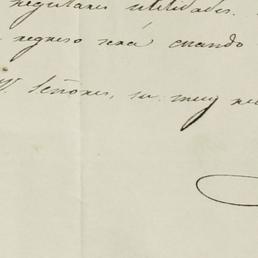 regulares utilidades.
regreso será cuando
Señores, su muy